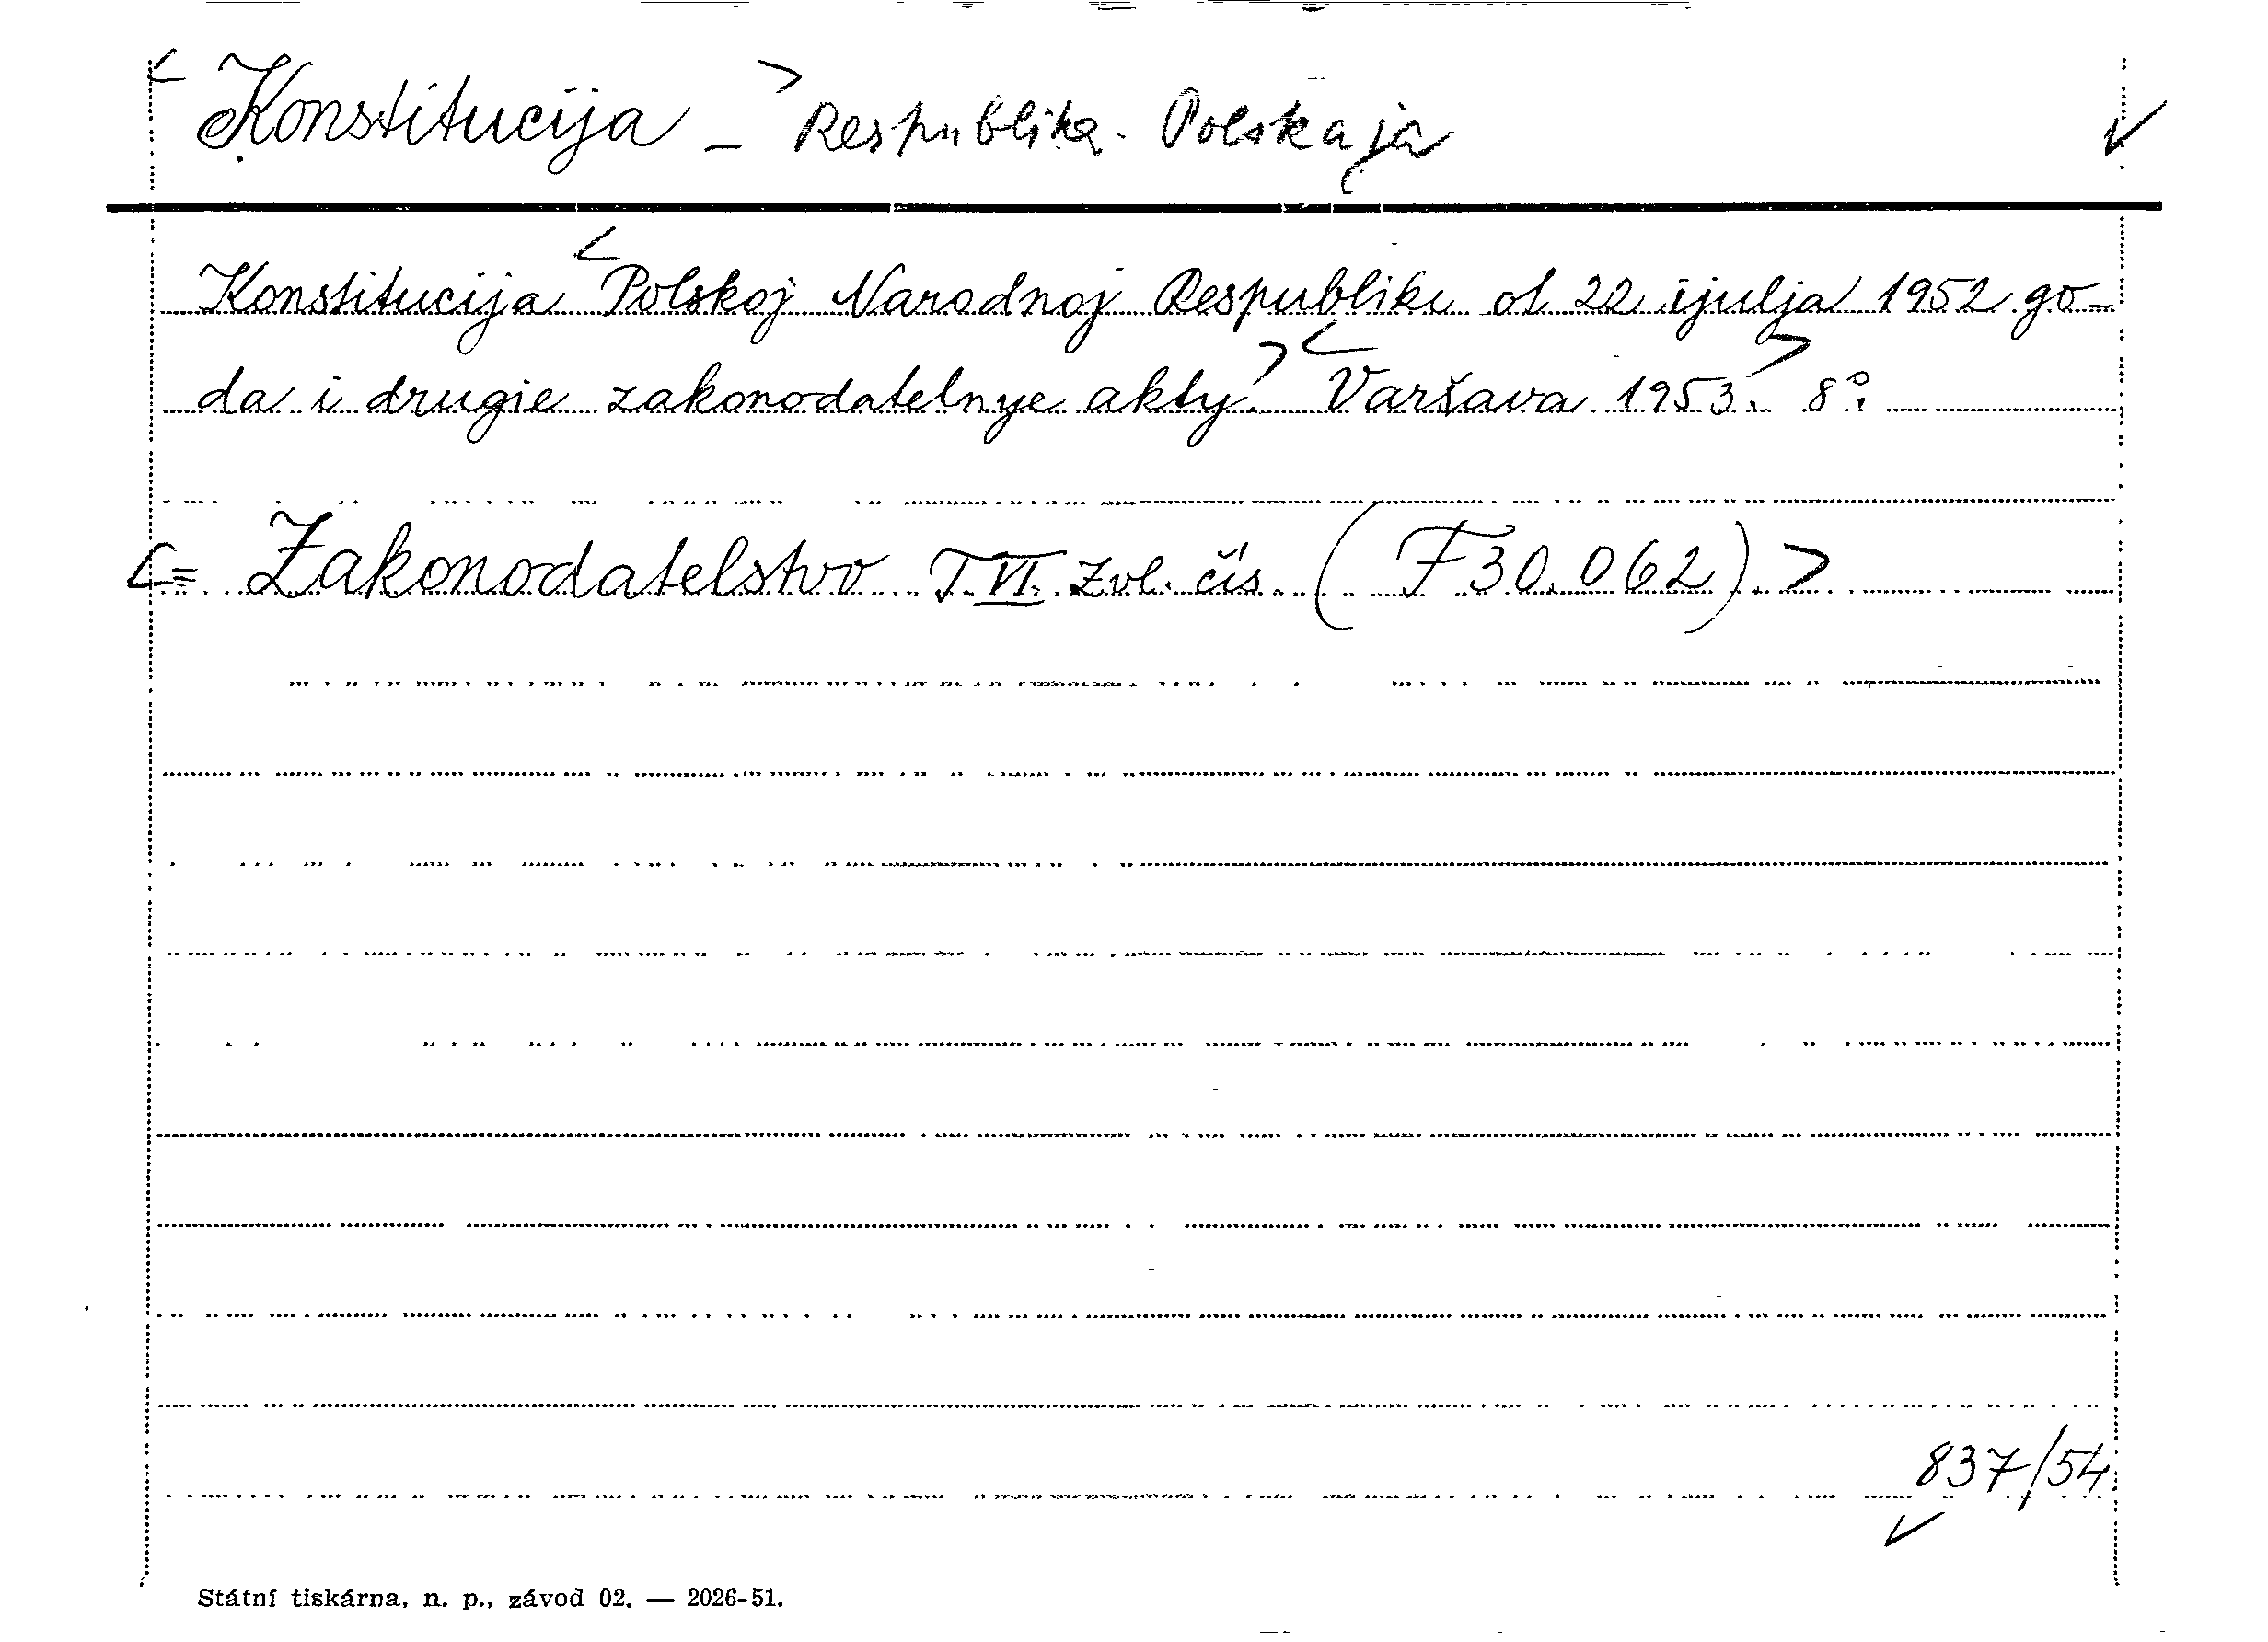 < Konstitucija - > Respublika Polskaja ✓
Konstitucija < Polskoj Narodnoj Respubliki ot 22 ijulja 1952 go-
da i drugie zakonodatelnye akty. > < Varšava 1953. > 8°.
< = Zakonodatelstvo T.VI. Zvl. čís. (F 30.062). >
837/54
✓
Státní tiskárna, n. p., závod 02. — 2026-51.